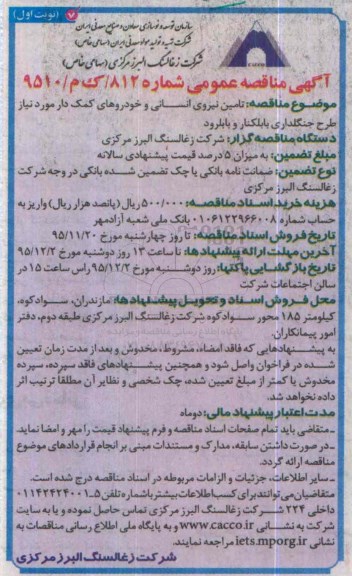 (نوبت اول)
سازمان توسعه و نوسازی معادن و صنایع معدنی ایران
شرکت تهیه و تولید مواد معدنی ایران (سهامی خاص)
شرکت زغالسنگ البرز مرکزی (سهامی خاص)
آگهی مناقصه عمومی شماره ۸۱۲/ک م/۹۵۱۰
موضوع مناقصه: تامین نیروی انسانی و خودروهای کمک دار مورد نیاز
طرح جنگلداری بابلکنار و بابلرود
دستگاه مناقصه گزار: شرکت زغالسنگ البرز مرکزی
مبلغ تضمین: به میزان ۵ درصد قیمت پیشنهادی سالانه
نوع تضمین: ضمانت نامه بانکی یا چک تضمین شده بانکی در وجه شرکت
زغالسنگ البرز مرکزی
هزینه خرید اسناد مناقصه: ۵۰۰/۰۰۰ ریال (پانصد هزار ریال) واریز به
حساب شماره ۰۱۰۶۱۲۲۹۶۶۰۰۸ بانک ملی شعبه آزادمهر
تاریخ فروش اسناد مناقصه: تا روز چهارشنبه مورخ ۹۵/۱۱/۲۰
آخرین مهلت ارائه پیشنهادها: تا ساعت ۱۳ روز دوشنبه مورخ ۹۵/۱۲/۲
تاریخ بازگشایی پاکتها: روز دوشنبه مورخ ۹۵/۱۲/۲ راس ساعت ۱۵ در
سالن اجتماعات شرکت
محل فروش اسناد و تحویل پیشنهادها: مازندران، سوادکوه،
کیلومتر ۱۸۵ محور سوادکوه شرکت زغالسنگ البرز مرکزی طبقه دوم، دفتر
امور پیمانکاران.
به پیشنهادهایی که فاقد امضاء، مشروط، مخدوش و بعد از مدت زمان تعیین
شده در فراخوان واصل شود و همچنین پیشنهادهای فاقد سپرده، سپرده
مخدوش یا کمتر از مبلغ تعیین شده، چک شخصی و نظایر آن مطلقا ترتیب اثر
داده نخواهد شد.
مدت اعتبار پیشنهاد مالی: دو ماه
ـ متقاضی باید تمام صفحات اسناد مناقصه و فرم پیشنهاد قیمت را مهر و امضا نماید.
ـ در صورت داشتن سابقه، مدارک و مستندات مبنی بر انجام قراردادهای موضوع
مناقصه ارائه گردد.
ـ سایر اطلاعات، جزئیات و الزامات مربوطه در اسناد مناقصه درج شده است.
متقاضیان می‌توانند برای کسب اطلاعات بیشتر با شماره تلفن ۵ـ۰۱۱۴۲۴۲۴۰۰۱
داخلی ۲۲۴ شرکت زغالسنگ البرز مرکزی تماس حاصل نموده و یا به سایت
شرکت به نشانی www.cacco.ir و به پایگاه ملی اطلاع رسانی مناقصات به
نشانی iets.mporg.ir مراجعه نمایند.
شرکت زغالسنگ البرز مرکزی